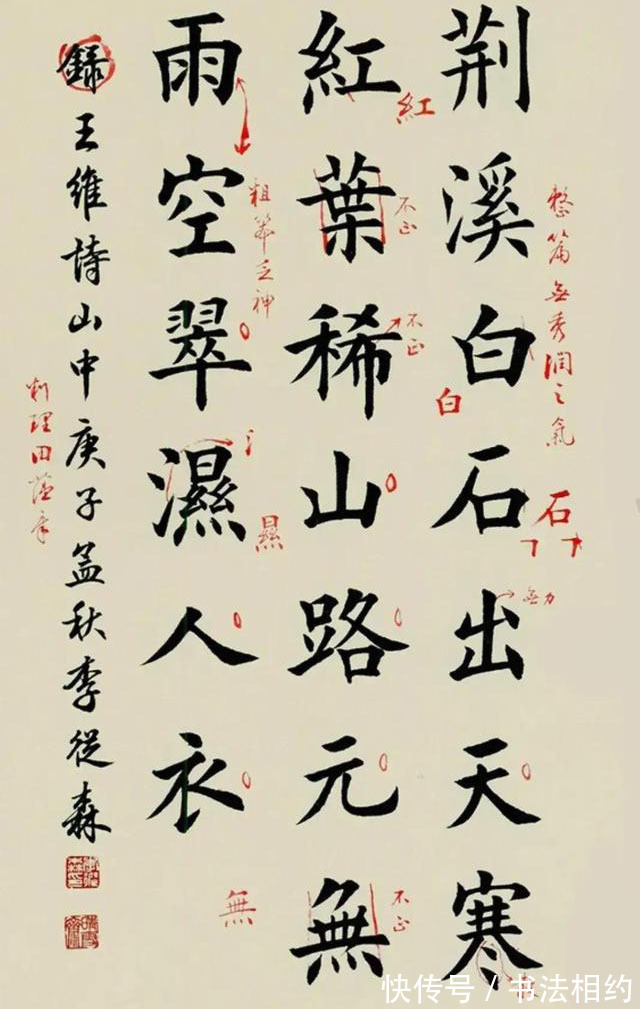 荆溪白石出天寒
紅葉稀山路元無
雨空翠濕人衣
錄王維詩山中庚子孟秋李從森
整篇無秀潤之氣
白
石
無力
紅
不正
不正
不正
粗笨乏神
㬎
無
快传号/书法相约